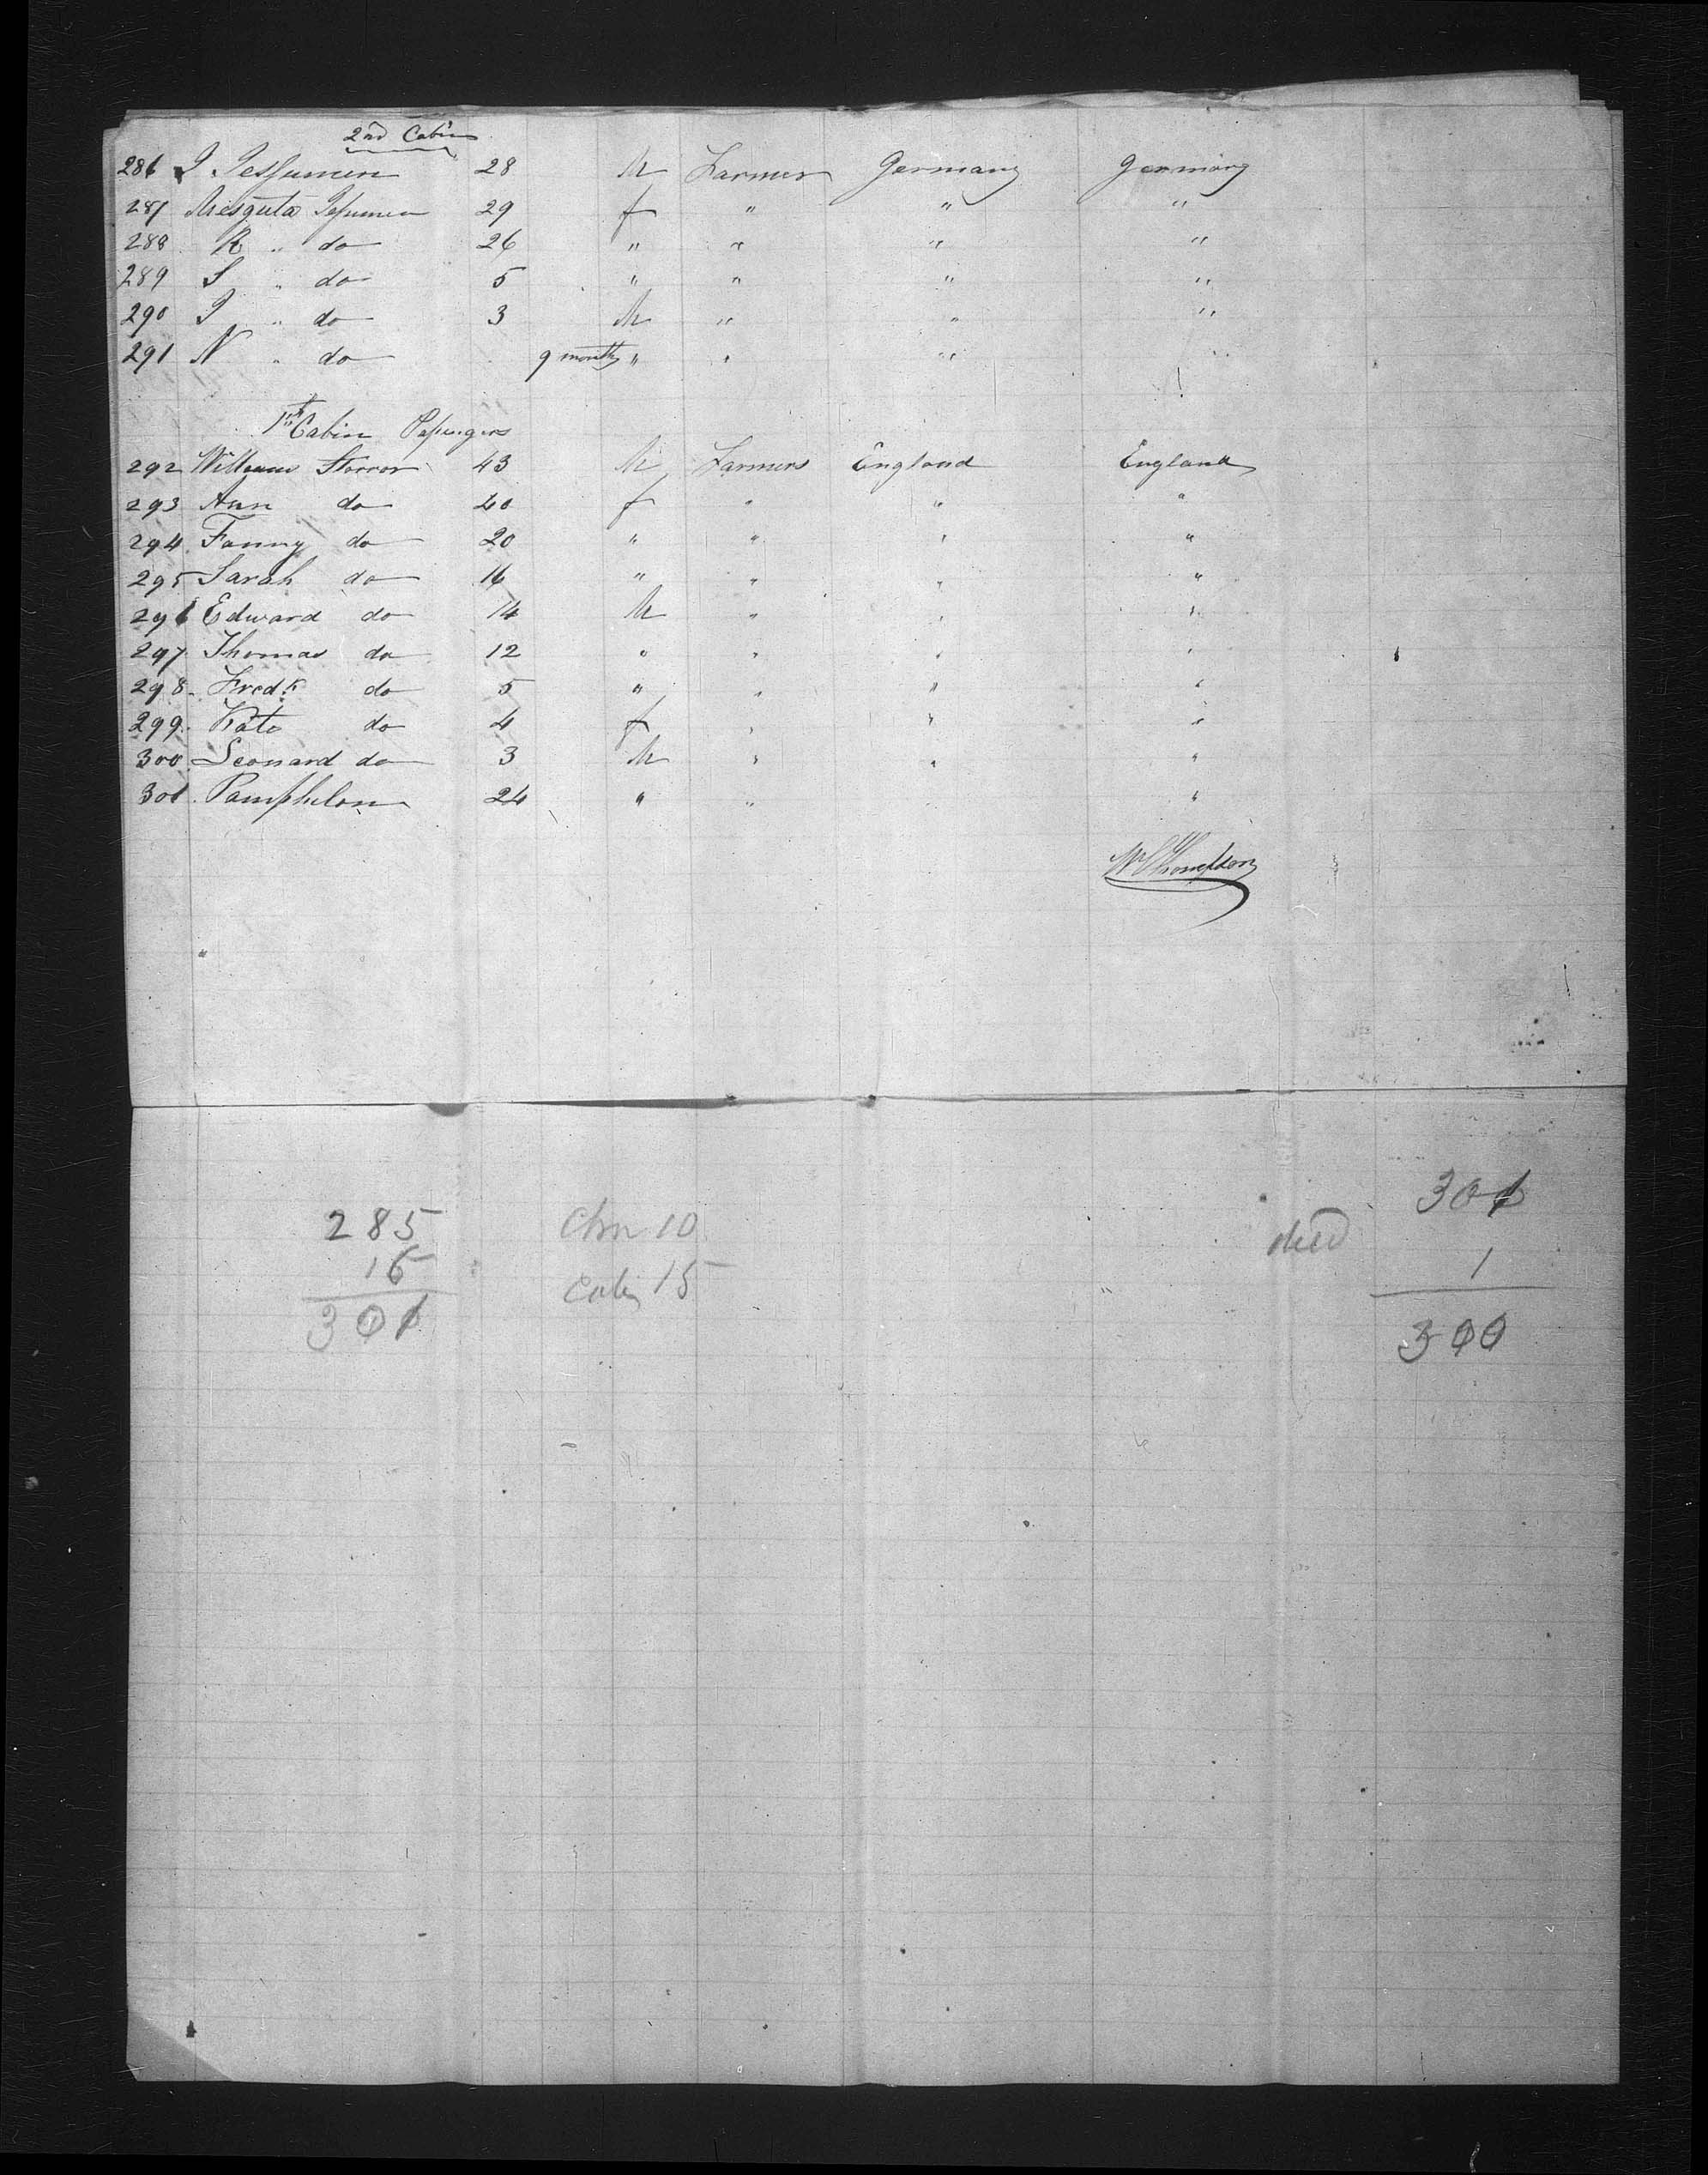 2nd Cabin
286 J Jessumen 28 M Farmer Germany Germany
287 Jessumen 29 f " " "
288 R " do 26 " " " "
289 S " do 5 " " " "
290 J " do 3 M " " "
291 N " do 9 months " " " "
1st Cabin Passengers
292 William Storror 43 M Farmers England England
293 Ann do 40 f " " "
294 Fanny do 20 " " " "
295 Sarah do 16 " " " "
296 Edward do 14 M " " "
297 Thomas do 12 " " " "
298 Fredk do 5 " " " "
299 Kate do 4 f " " "
300 Leonard do 3 M " " "
301 Pamphilon 24 " " " "
W Thompson
285
16
301
Chn 10
Cabin 15
301
died 1
300